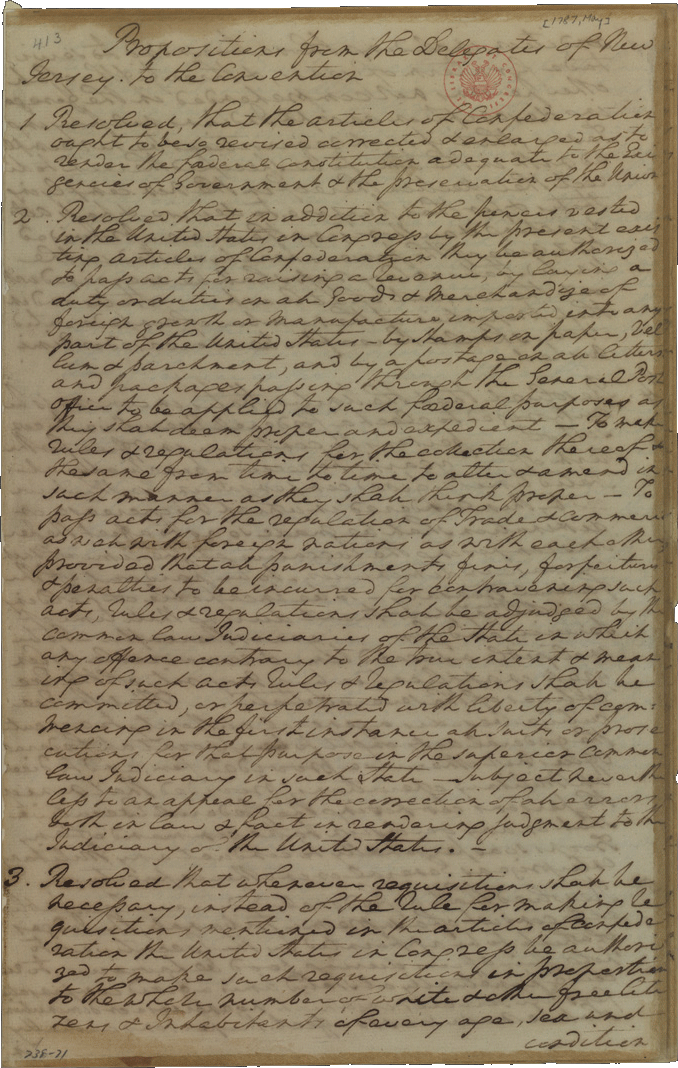 413
[1787, May]
Propositions from the Delegates of New
Jersey. to the Convention
LIBRARY OF CONGRESS
1 Resolved, that the articles of Confederation
ought to be so revised corrected & enlarged as to
render the fœderal Constitution adequate to the Exi
gencies of Government & the preservation of the Union
2. Resolved that in addition to the powers vested
in the United States in Congress by the present exis
ting articles of Confederation they be authorized
to pass acts for raising a Revenue, by laying a
duty or duties on all Goods & Merchandize of
foreign growth or manufacture imported into any
part of the United States - by Stamps on paper, Vel
lum & parchment, and by a postage on all letters
and packages passing through the General Post
office to be applied to such fœderal purposes as
they shall deem proper and expedient — To make
rules & regulations for the collection thereof &
the same from time to time to alter & amend in
such manner as they shall think proper — To
pass acts for the regulation of Trade & commerce
as well with foreign nations as with each other
provided that all punishments fines, forfeitures
& penalties to be incurred for contravening such
acts, rules & regulations shall be adjudged by the
common law Judiciaries of the State in which
any offence contrary to the true intent & mean
ing of such acts rules & regulations shall be
committed, or perpetrated with liberty of com-
mencing in the first instance all suits or prose
cutions for that purpose in the superior common
law Judiciary in such State — subject neverthe
less to an appeal for the correction of all errors,
both in law & fact in rendering judgment to the
Judiciary of the United States. —
3. Resolved that whenever requisitions shall be
necessary, instead of the rule for making re
quisitions mentioned in the articles of Confede
ration the United States in Congress be authori
zed to make such requisitions in proportion
to the whole number of white & other free citi
zens & Inhabitants of every age, sex and
condition
238-71